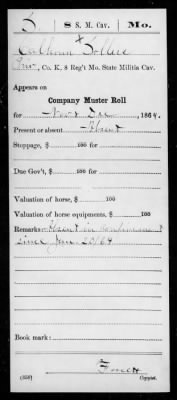 S | 8 S. M. Cav. | Mo.
Calhoun Sollie
Priv, Co. K, 8 Reg't Mo. State Militia Cav.
Appears on
Company Muster Roll
for Nov & Dec, 1864.
Present or absent Absent
Stoppage, $ 100 for
Due Gov't, $ 100 for
Valuation of horse, $ 100
Valuation of horse equipments, $ 100
Remarks: Absent in confinement
since Jan 20/64
Book mark:
(358)
Copyist.